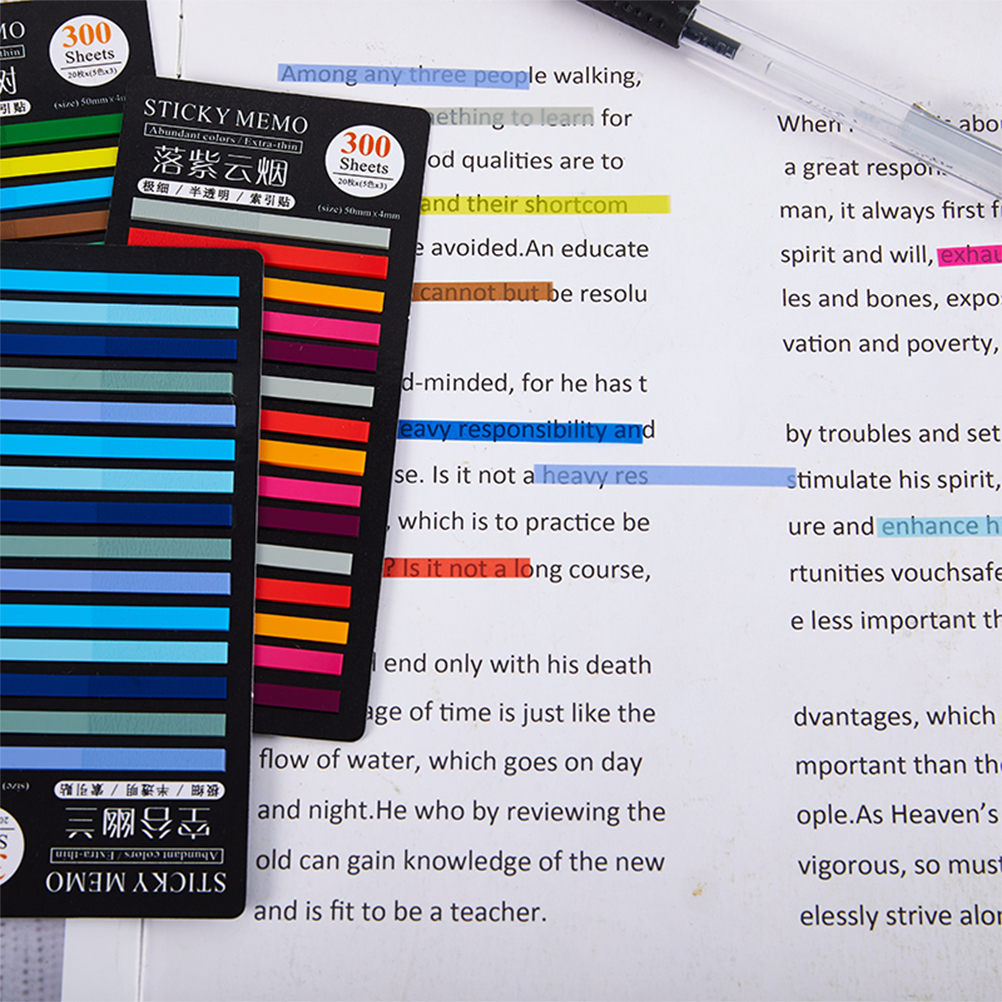 300
Sheets
20枚x(5色x3)
引贴
(size) 50mmx4m
STICKY MEMO
Abundant colors / Extra-thin
300
Sheets
20枚x(5色x3)
落紫云烟
极细 / 半透明 / 索引贴
(size) 50mmx4mm
极细 / 半透明 / 索引贴
(size)
空谷幽兰
Abundant colors / Extra-thin
STICKY MEMO
Among any three people walking,
ething to learn for
od qualities are to
and their shortcom
e avoided.An educate
cannot but be resolu
d-minded, for he has t
eavy responsibility and
se. Is it not a heavy res
, which is to practice be
? Is it not a long course,
end only with his death
age of time is just like the
flow of water, which goes on day
and night.He who by reviewing the
old can gain knowledge of the new
and is fit to be a teacher.
When
a great respon
man, it always first f
spirit and will, exhau
les and bones, expo
vation and poverty,
by troubles and set
stimulate his spirit,
ure and enhance h
rtunities vouchsafe
e less important th
dvantages, which
mportant than the
ople.As Heaven's
vigorous, so must
elessly strive alon